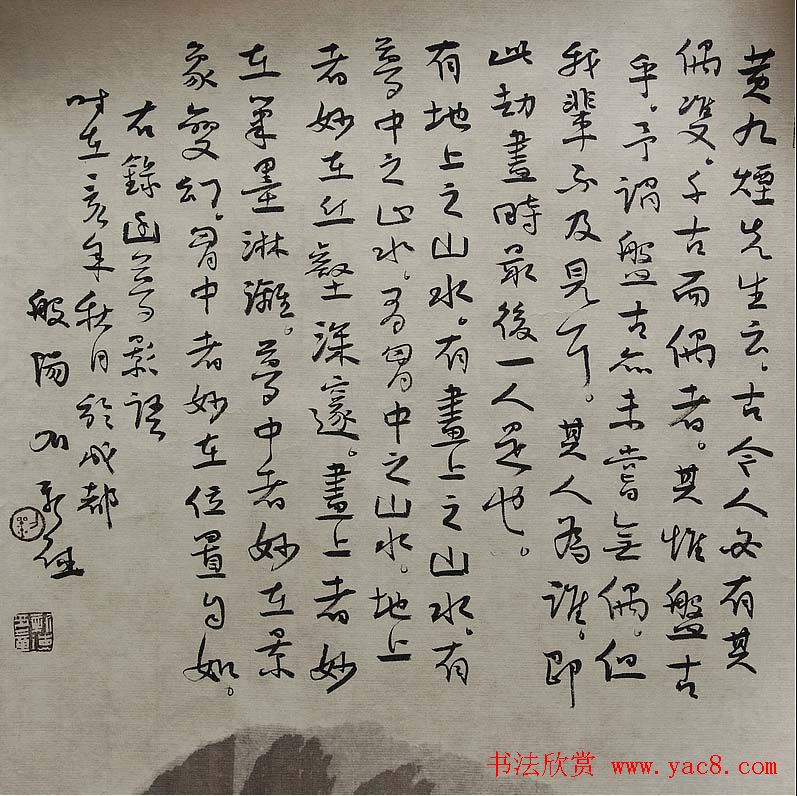 黄九煙先生云。古今人必有其
偶雙。千古而偶者。其惟盤古
乎。予謂盤古亦未嘗無偶。但
我輩不及見耳。其人為誰。即
此劫盡時最後一人是也。
有地上之山水。有畫上之山水。有
夢中之山水。有胸中之山水。地上
者妙在丘壑深邃。畫上者妙
在筆墨淋漓。夢中者妙在景
象變幻。胸中者妙在位置自如。
右錄幽夢影語
时在亥年秋月於成都
般陽
书法欣赏 www.yac8.com